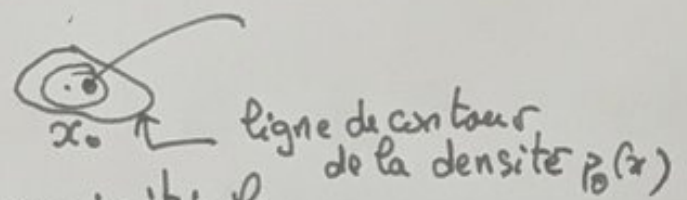 x₀
ligne de contour
de la densité p₀(x)